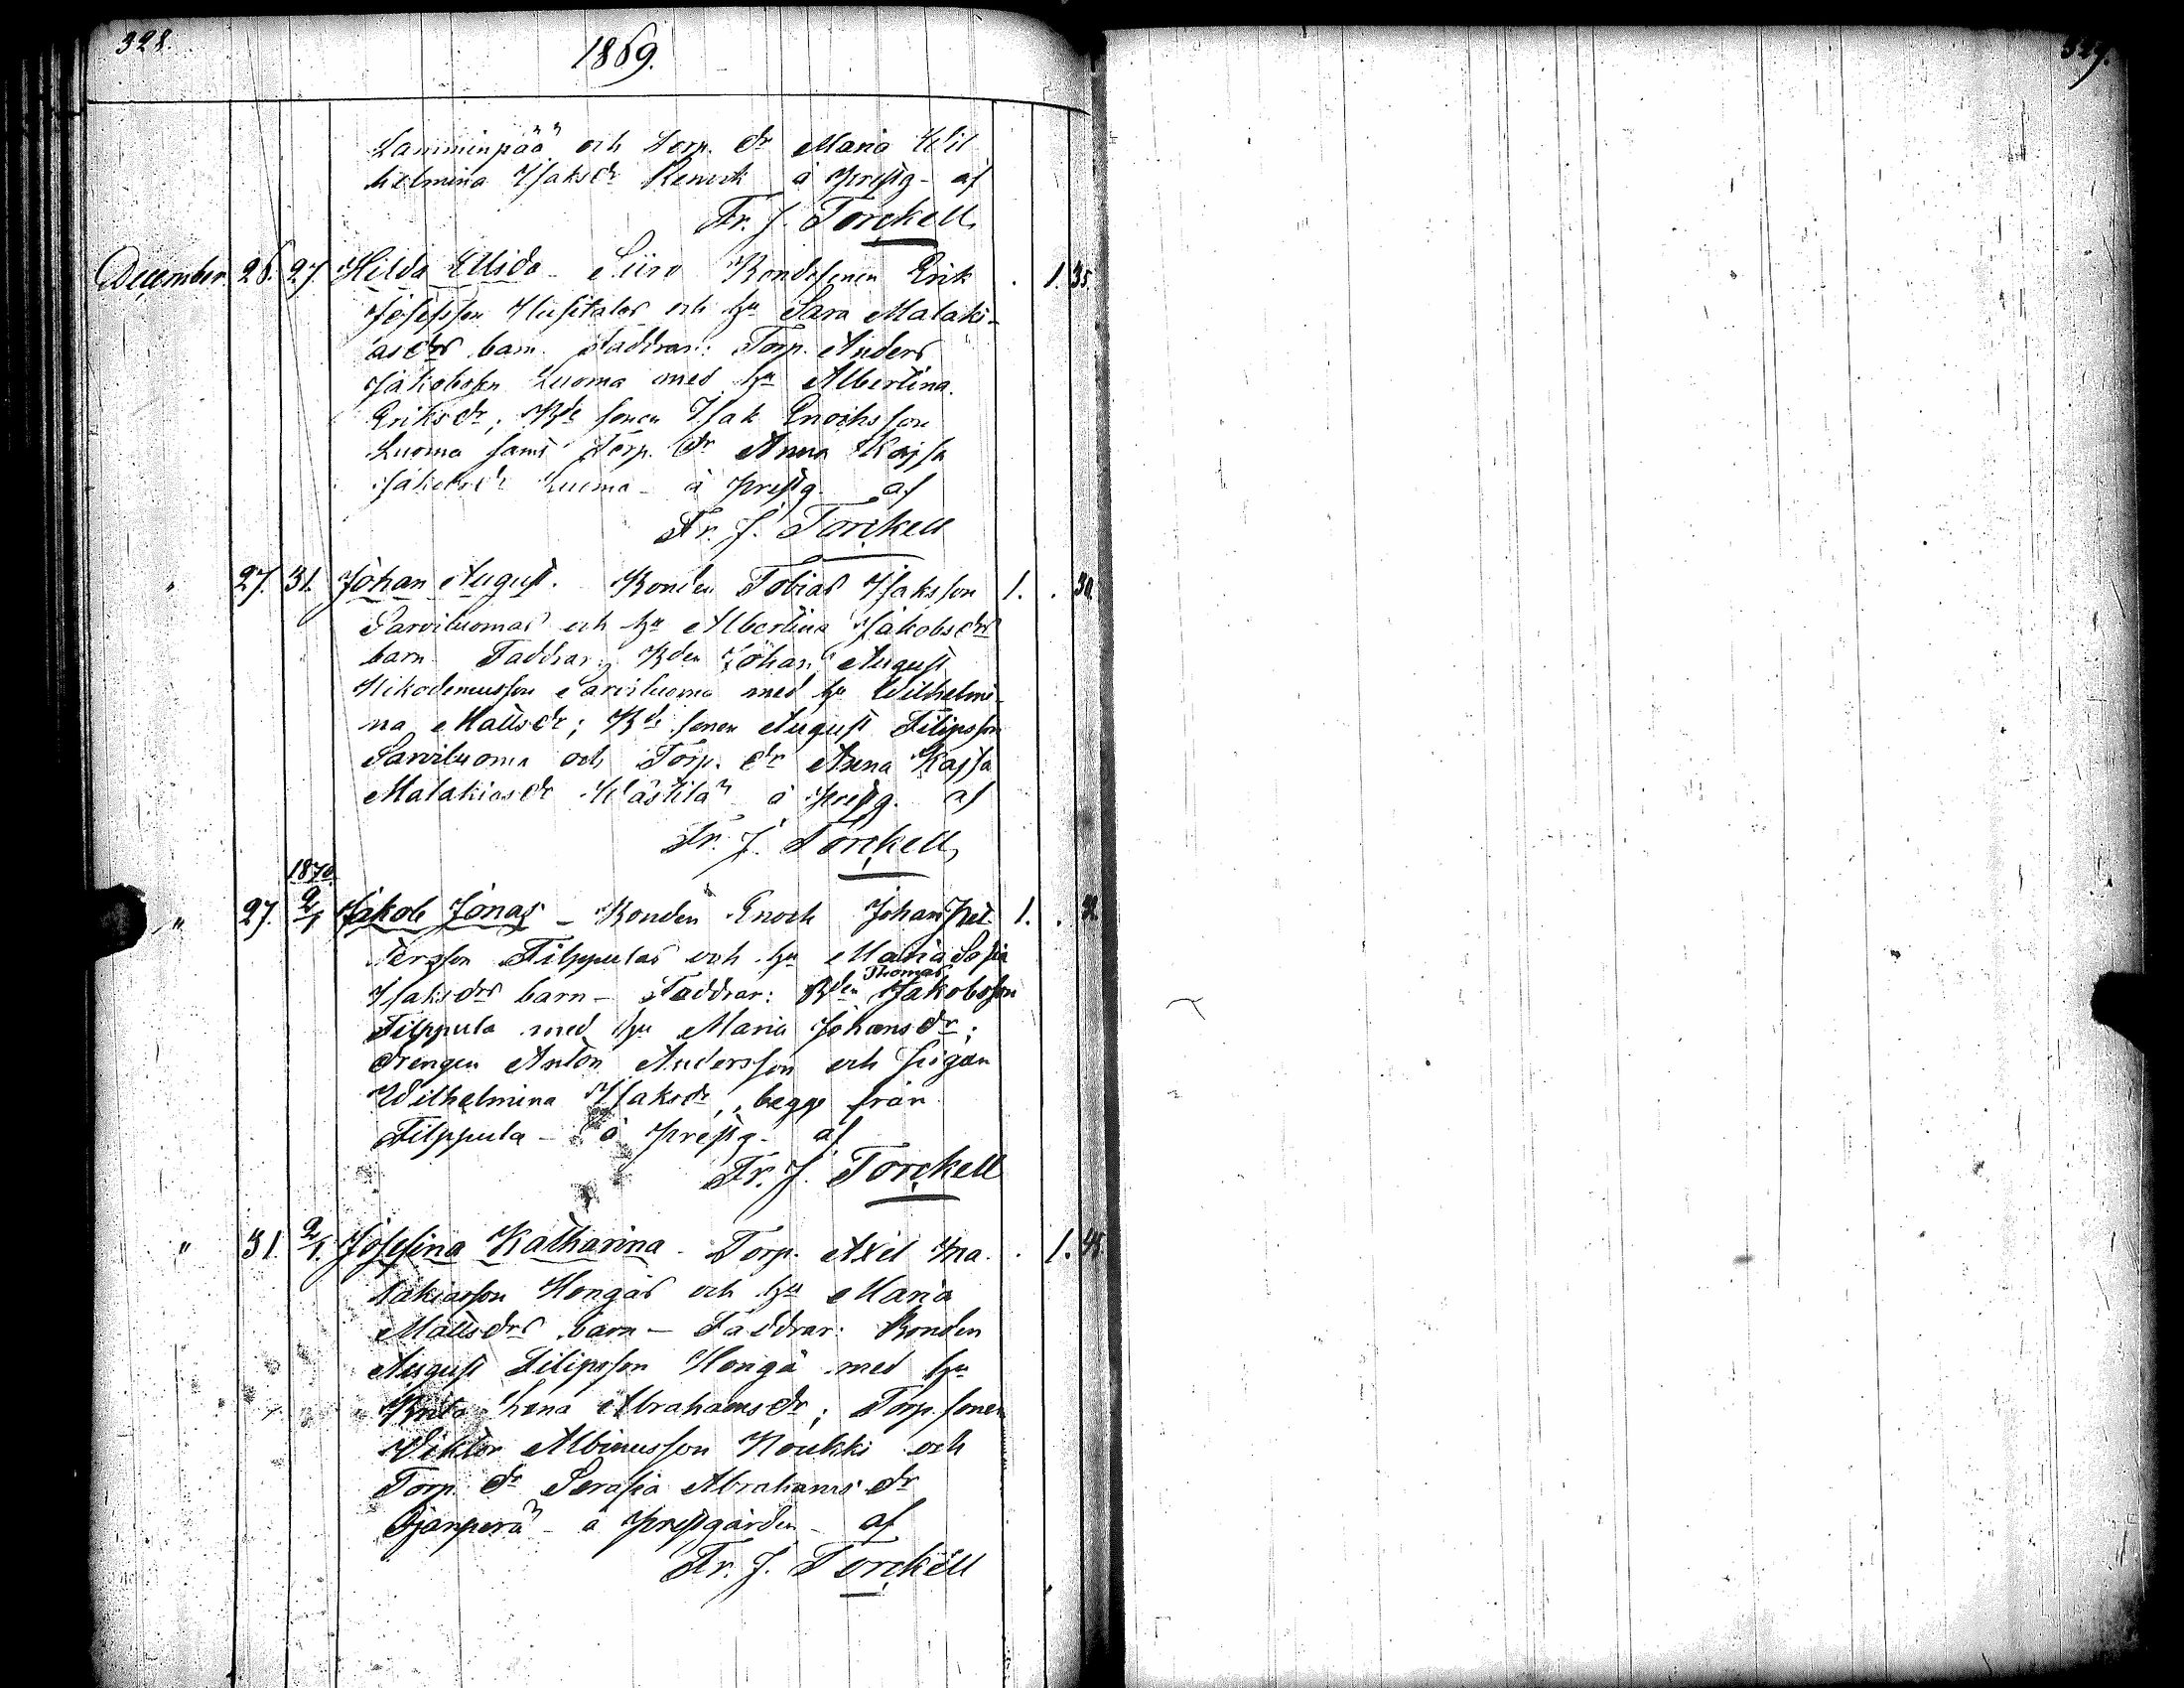 328.
1869.
329.
Lamminpää och Torp. dr Maria Wil
helmina Isaksdr å prestg- af
Fr. J. Torckell
December. 26. 27. Hilda Elisda - Siiro Bondesonen Erik . 1. 35.
Josefsson och hu Sara Malaki-
asdrs barn. Faddrar: Torp. Anders
Jakobsson Luoma med hu Albertina
Eriksdr; Bde sonen Isak Enochsson
Luoma samt Torp. dr Anna Kajsa
Jakobsdr Luoma - å prestg- af
Fr. J. Torckell
" 27. 31. Johan August. Bonden Tobias Isaksson 1. . 30.
Sarviluomas och hu Albertina Jakobsdrs
barn - Faddrar: Bden Johan August
Nikodemusson Sarviluoma med hu Wilhelmi-
na Mattsdr; Bde sonen August Filipsson
Sarviluoma och Torp. dr Anna Kajsa
Malakiasdr Västilä å prestg. af
Fr. J. Torckell
1870.
" 27. 2/1 Jakob Jonas - Bonden Enoch Johan Pet- 1. . 32.
tersson Filppulas och hu Maria Sofia
Isaksdrs barn - Faddrar: Bden Thomas Jakobsson
Filppula med hu Maria Johansdr;
drengen Anton Andersson och pigan
Wilhelmina Isaksdr, begge från
Filppula - å prestg- af
Fr. J. Torckell
" 31. 2/1. Josefina Katharina - Torp. Axel Ma- . 1. 45.
lakiasson Hongas och hu Maria
Mattsdrs barn - Faddrar: Bonden
August Filipsson Honga med hu
Brita Lena Abrahamsdr; Torp. sonen
Viktor Albinusson Koukki och
Torp. dr Serafia Abrahamsdr
å prestgården - af
Fr. J. Torckell